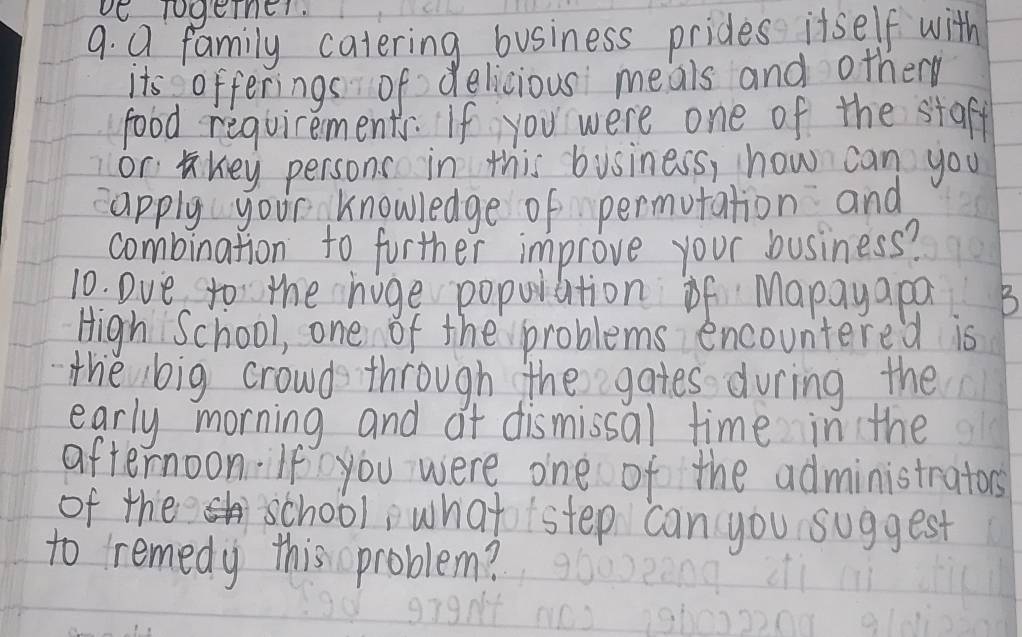 be together.
9. a family catering business prides itself with
its offerings of delicious meals and other
food requirements. If you were one of the staff
or key persons in this business, how can you
apply your knowledge of permutation and
combination to further improve your business?
10. Due to the huge population of Mapayapa
High School, one of the problems encountered is
the big crowd through the gates during the
early morning and at dismissal time in the
afternoon. If you were one of the administrators
of the school, what step can you suggest
to remedy this problem?